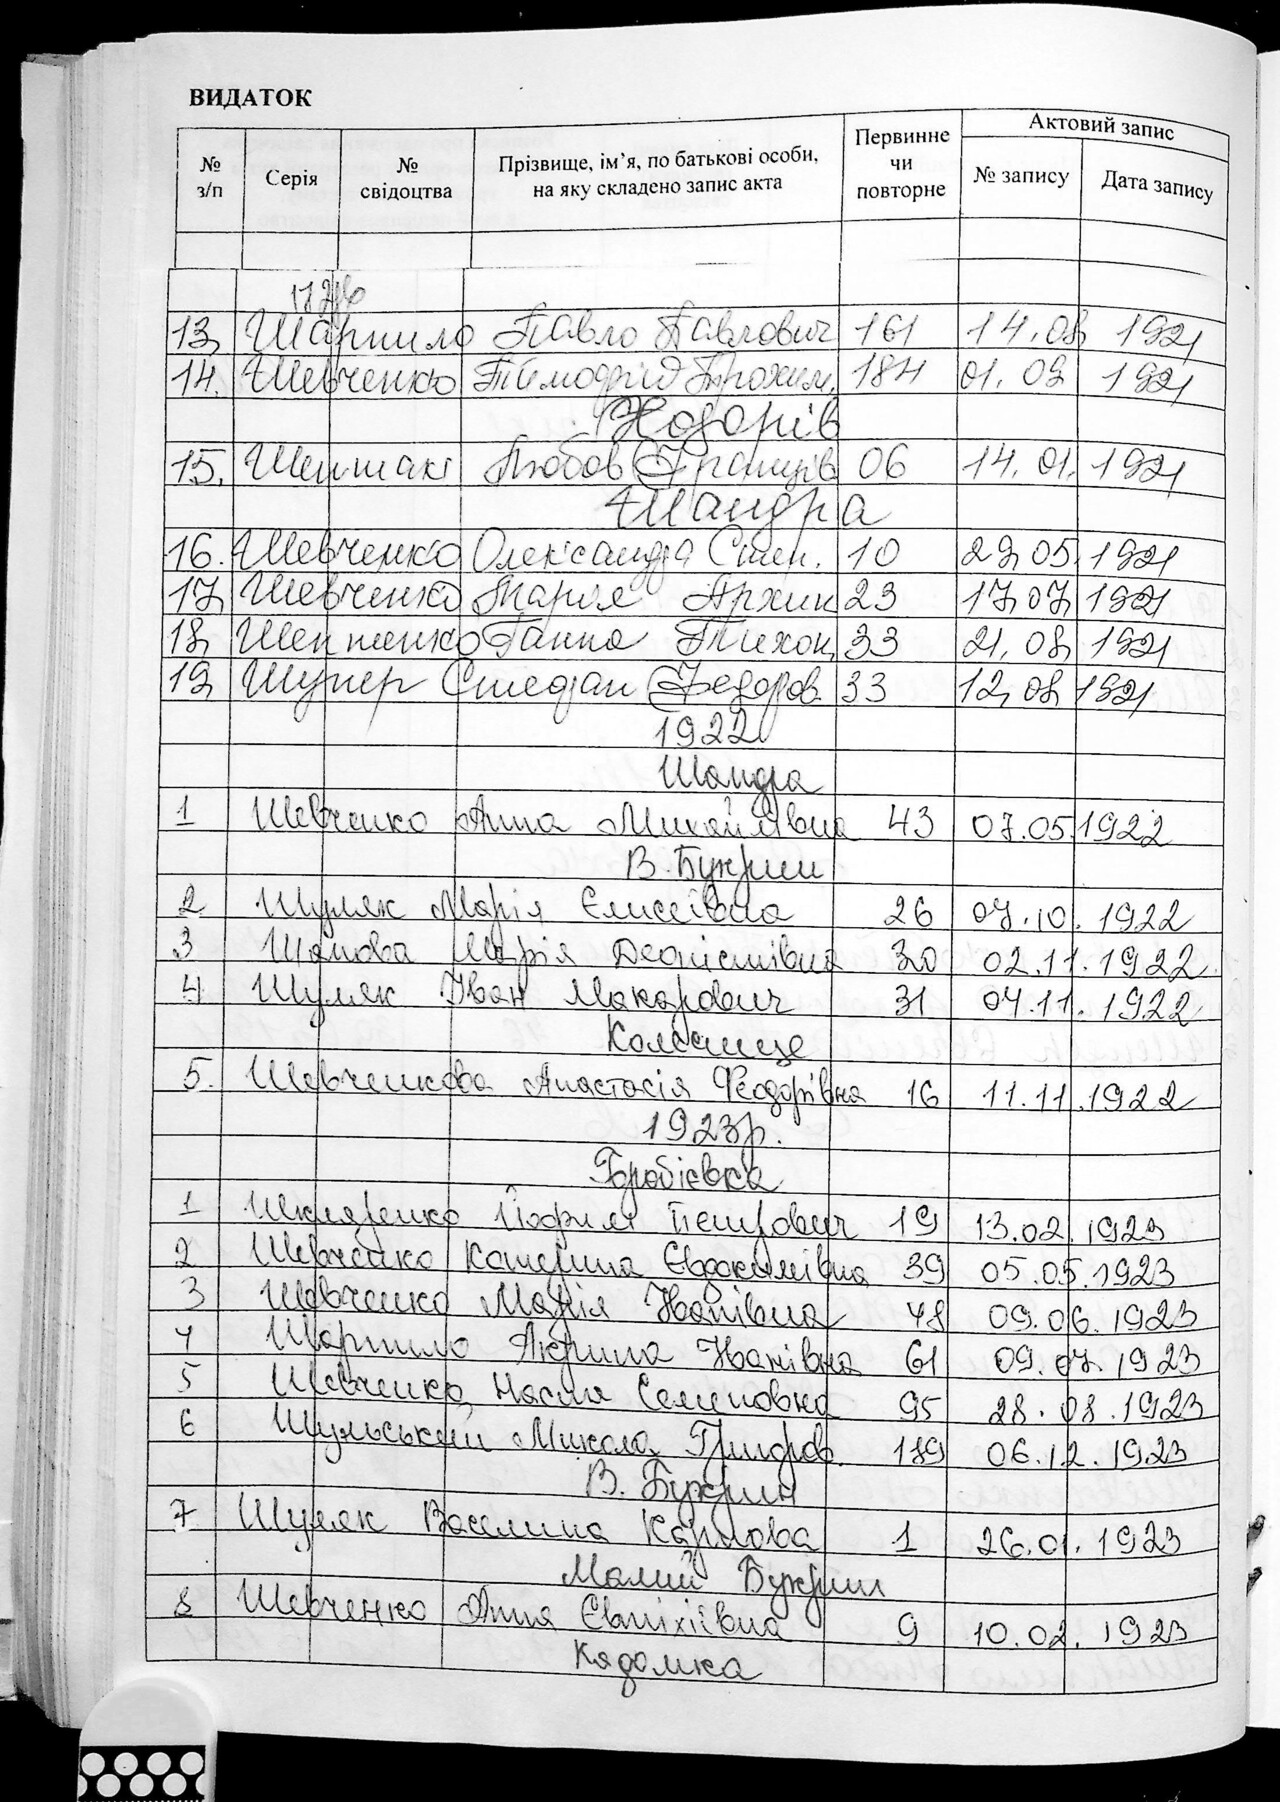 ВИДАТОК
№ з/п Серія № свідоцтва Прізвище, ім’я, по батькові особи, на яку складено запис акта Первинне чи повторне Актовий запис № запису Дата запису
13. Шарпило Павло Павлович 161 14.08 1921
14. Шевченко Тимофій Трохим. 184 01.09 1921
Ходорів
15. Любов Франців 06 14.01. 1921
Шандра
16. Шевченко Олександра Степ. 10 29.05. 1921
17. Шевченко Марія Архип 23 17.07. 1921
18. Ганна Тихон. 33 21.08. 1921
19. Шупер Стефан Федоров. 33 12.08 1921
1922
Шандра
1 Шевченко Анна Михайлівна 43 07.05.1922
В. Букрин
2 Шуляк Марія Єлисеївна 26 07.10.1922
3 Марія Деонісіївна 30 02.11.1922
4 Шуляк Іван Макарович 31 04.11.1922
5. Шевченкова Анастасія Феодорівна 16 11.11.1922
1923р.
Горобіївка
1 Шкляренко Петрович 19 13.02.1923
2 Шевченко Катерина Євдокимівна 39 05.05.1923
3 Шевченко Марія Іванівна 48 09.06.1923
4 Шарпило Акрина Іванівна 61 09.07.1923
5 Шевченко Настя Семеновна 95 28.08.1923
6 Шульський Микола Григоров. 189 06.12.1923
В. Букрин
7 Шуляк Василина Карпова 1 26.01.1923
Малий Букрин
8 Шевченко Анна Євтіхіївна 9 10.02.1923
Кадомка